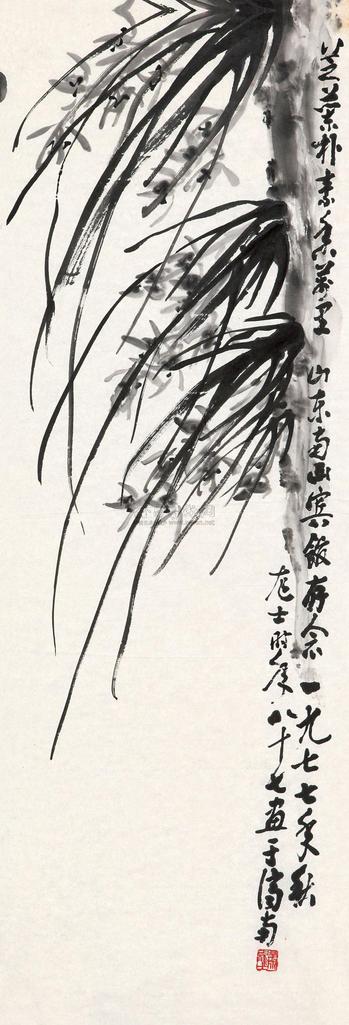 芝叶朴素香万里 山东南山宾馆存念 一九七七年秋
左士时年八十七画于济南